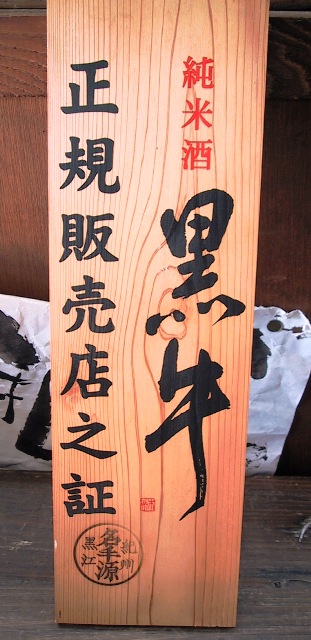 純米酒
黒牛
正規販売店之証
紀州
名手源
黒江